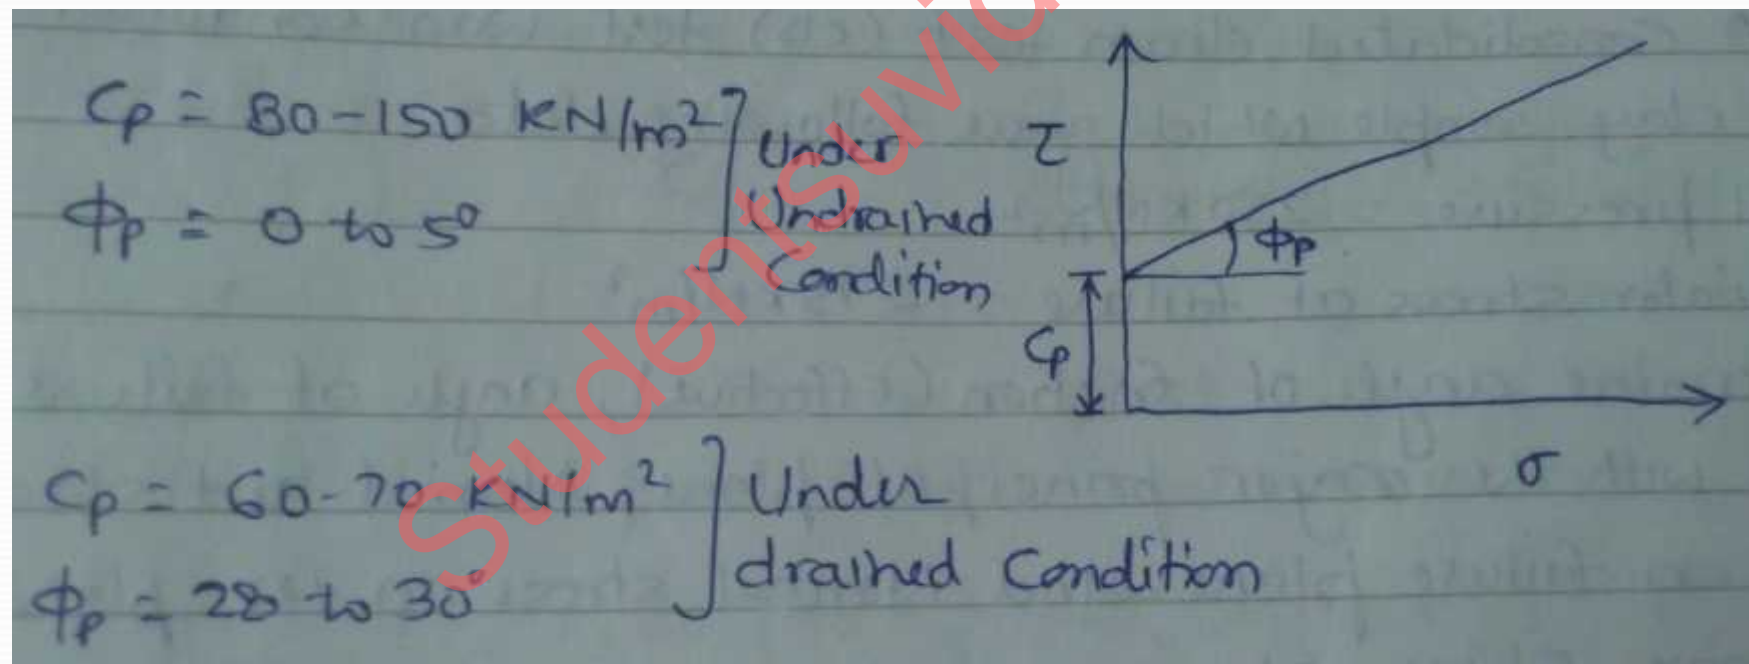 Cp = 80-150 KN/m²
Φp = 0 to 5°
Under
Undrained
Condition
τ
Φp
Cp
σ
Cp = 60-70 KN/m²
Φp = 28 to 30°
Under
drained Condition
Studentsuvid